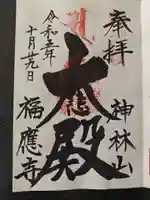 奉拝
神林山
大殿
福應寺
令和五年
十月廿九日